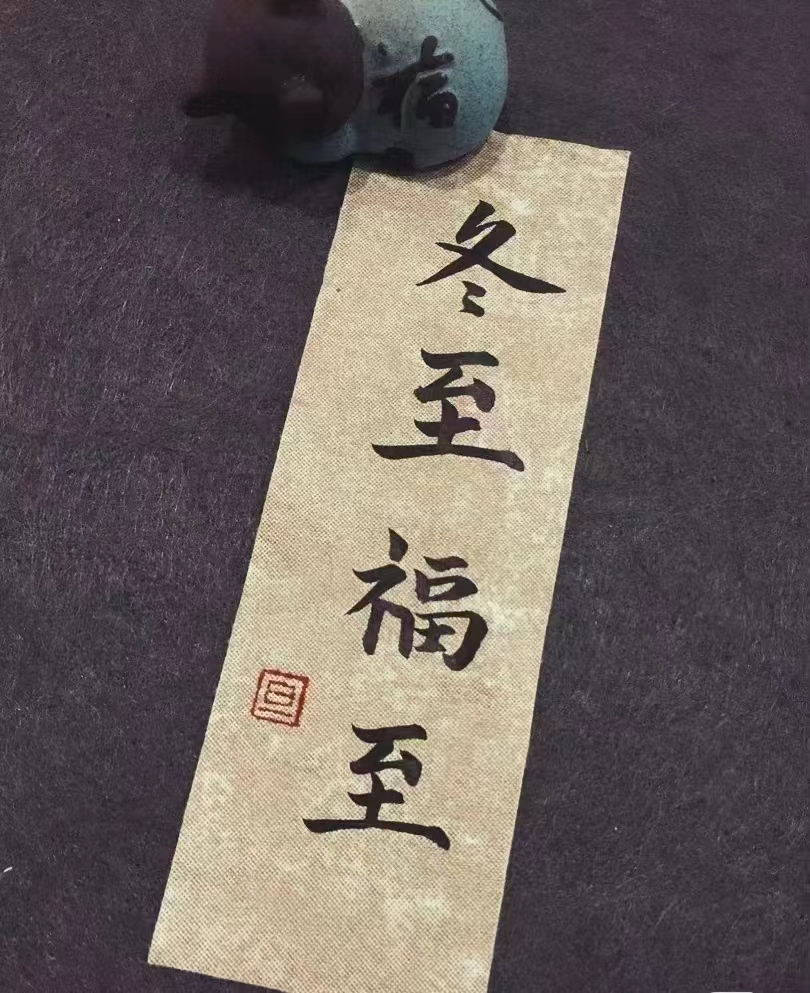 福
冬至福至